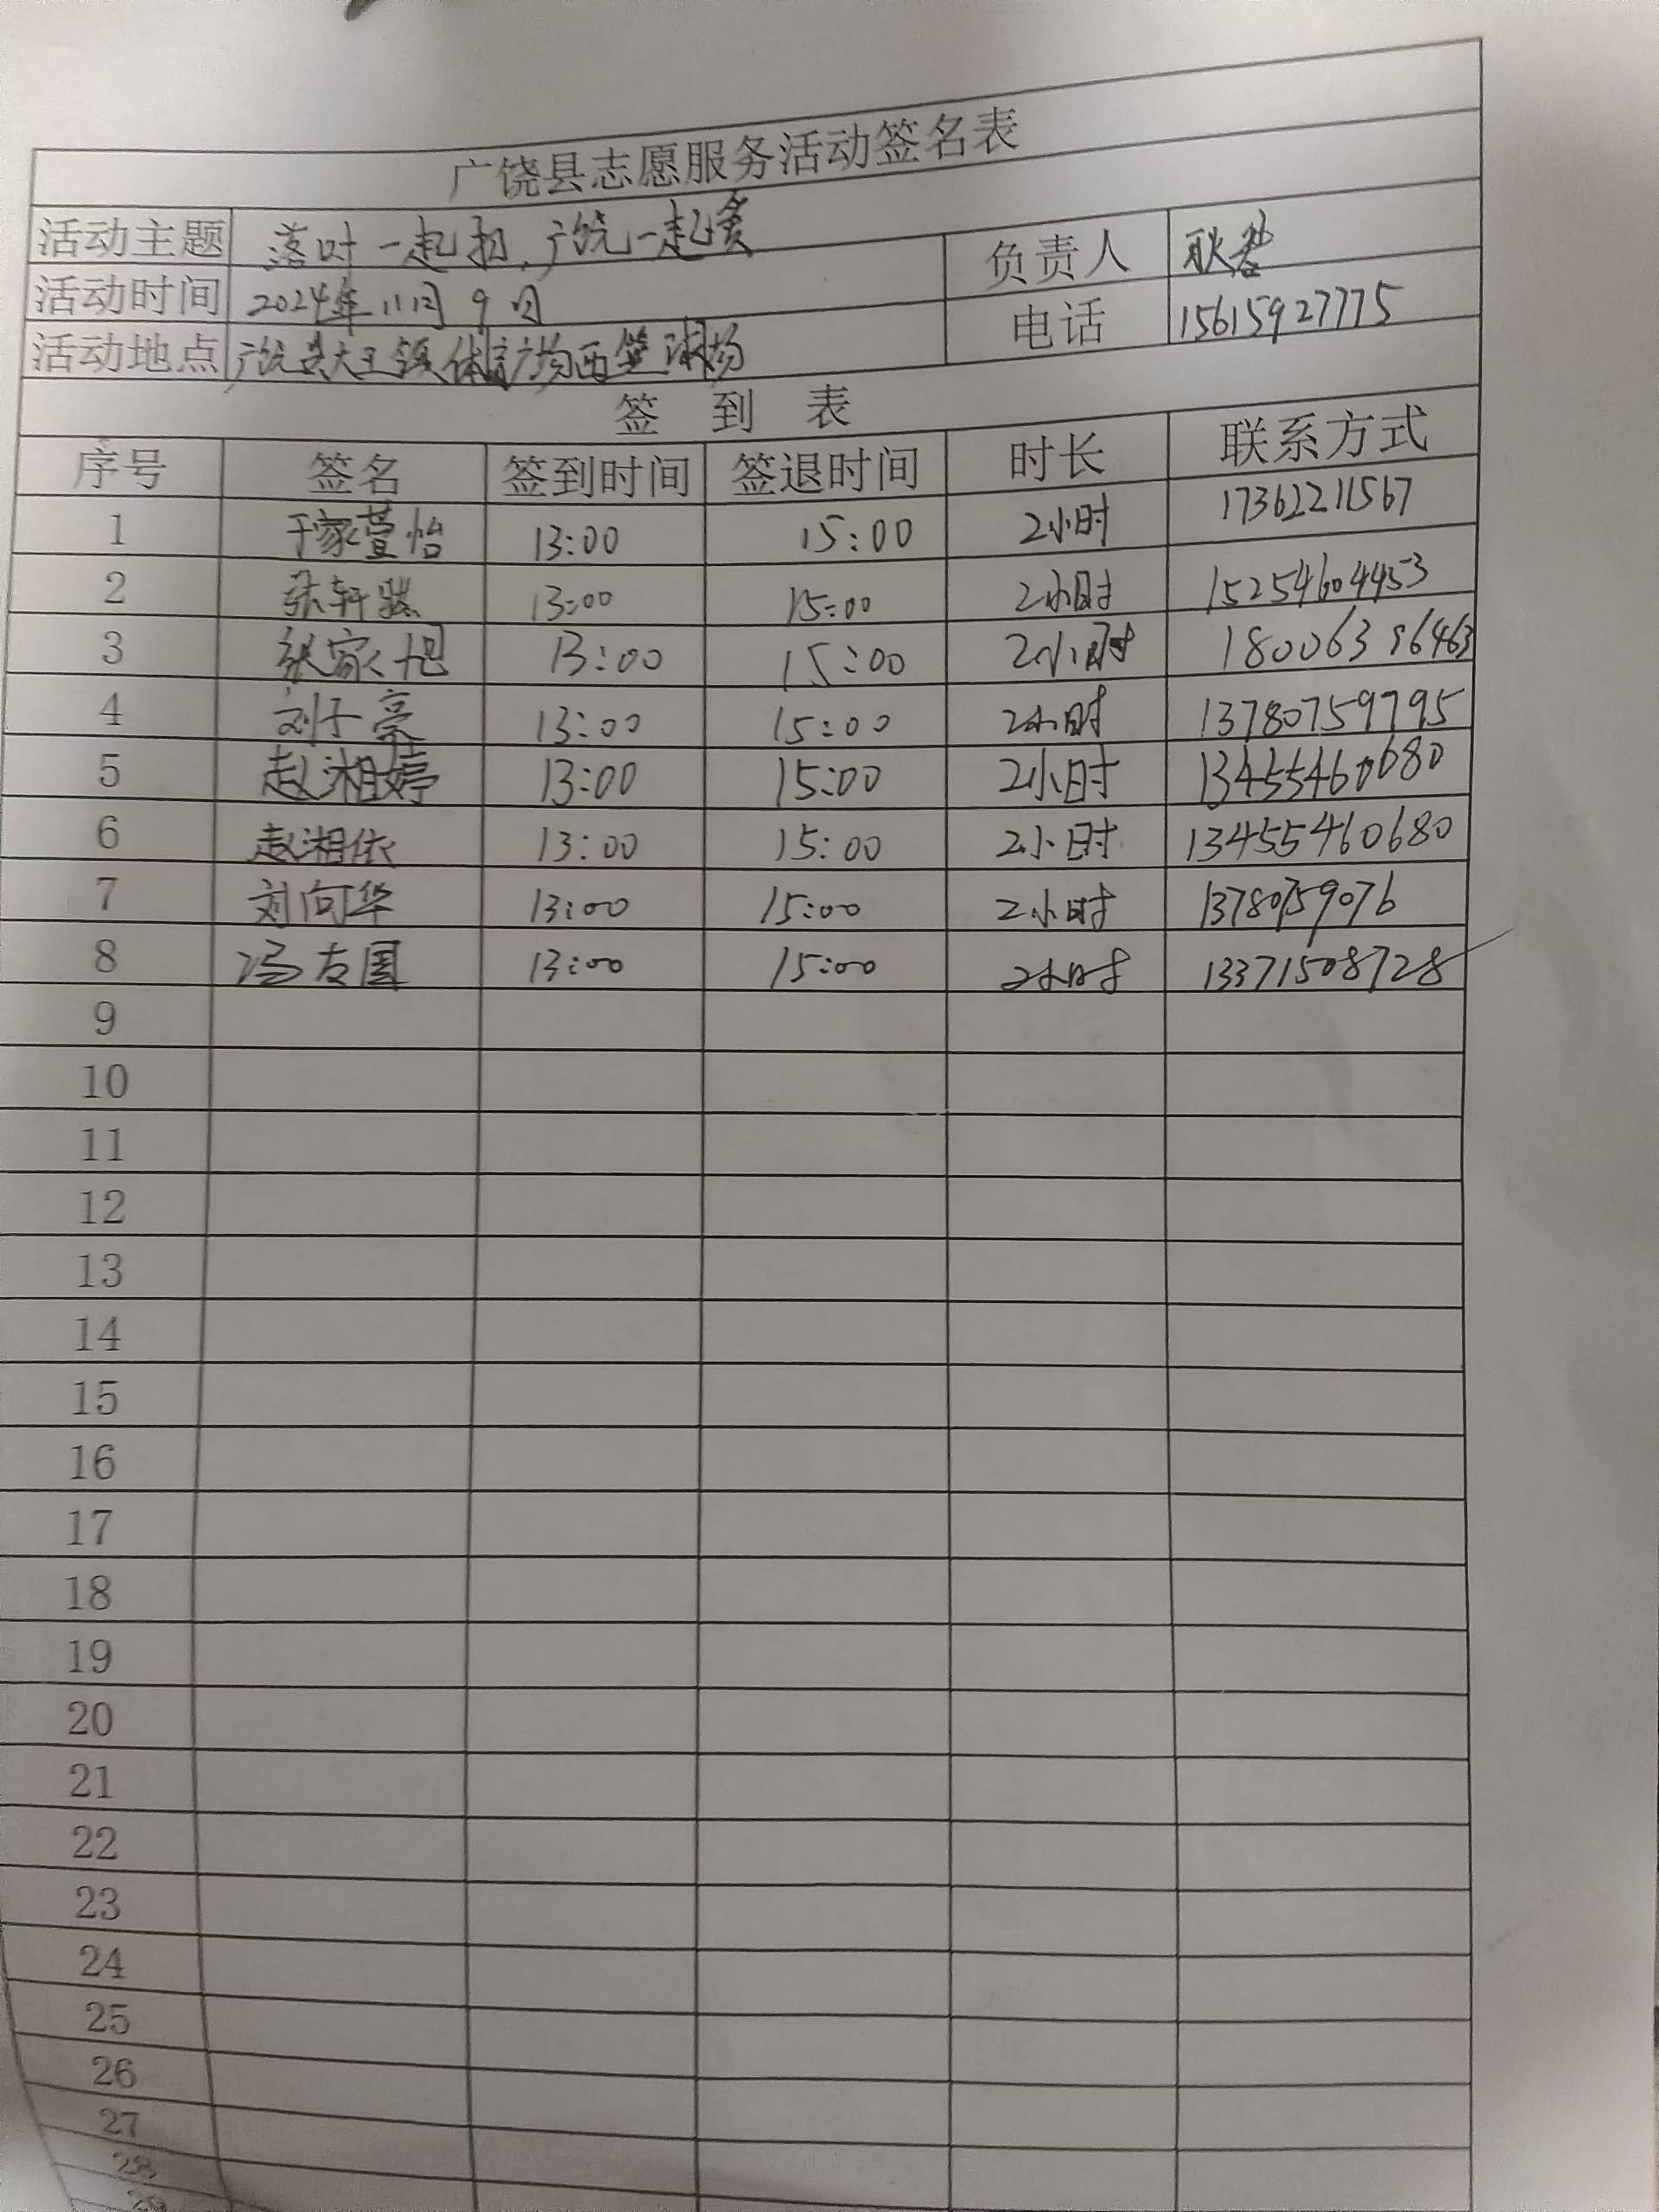 广饶县志愿服务活动签名表
活动主题 落叶一起扫,广饶一起赏
负责人 耿
活动时间 2024年11月9日
电话 15615927775
活动地点 广饶县大王镇体育广场西篮球场
签 到 表
序号 签名 签到时间 签退时间 时长 联系方式
1 于家萱怡 13:00 15:00 2小时 17362211567
2 张轩 13:00 15:00 2小时 15254604453
3 张家旭 13:00 15:00 2小时 18006396463
4 刘子豪 13:00 15:00 2小时 13780759795
5 赵湘婷 13:00 15:00 2小时 13455460680
6 赵湘依 13:00 15:00 2小时 13455460680
7 刘向华 13:00 15:00 2小时 13780759076
8 冯友国 13:00 15:00 2小时 13371508728
9
10
11
12
13
14
15
16
17
18
19
20
21
22
23
24
25
26
27
28
29